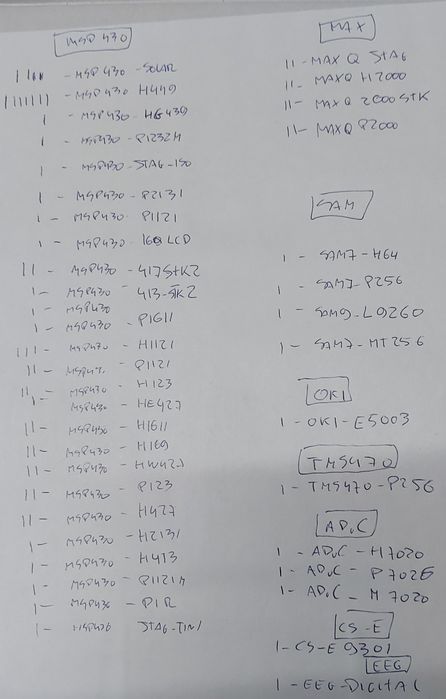 MSP430
|||| - MSP430 - SOLAR
||||||| - MSP430 - H449
| - MSP430 - HG439
| - MSP430 - P1232H
| - MSP430 - STAG-ISO
| - MSP430 - P2131
| - MSP430 - P1121
| - MSP430 - 169LCD
|| - MSP430 - 417STK2
| - MSP430 - 413-STK2
| - MSP430 - P1611
||| - MSP430 - H1121
|| - MSP430 - P1121
|| - MSP430 - H123
| - MSP430 - HE427
|| - MSP430 - H1611
|| - MSP430 - H169
|| - MSP430 - HW42
|| - MSP430 - P123
|| - MSP430 - H427
| - MSP430 - H2131
| - MSP430 - H413
| - MSP430 - P1121
| - MSP430 - P1R
| - MSP430 STAG-TINY
MAX
|| - MAXQ STAG
|| - MAXQ H2000
|| - MAXQ 2000STK
|| - MAXQ P2000
SAM
| - SAM7 - H64
| - SAM7 - P256
| - SAM9 - L9260
| - SAM7 - MT256
OKI
1 - OKI - E5003
TMS470
1 - TMS470 - P256
ADuC
1 - ADuC - H7020
1 - ADuC - P7026
1 - ADuC - M7020
CS-E
1 - CS-E9301
EEG
1 - EEG-DIGITAL